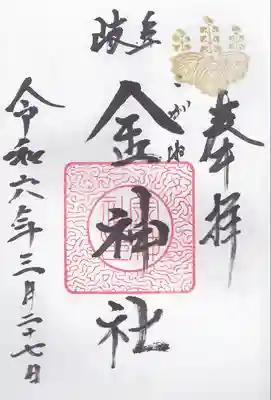 奉拝
こがね
金神社
令和六年三月二十七日